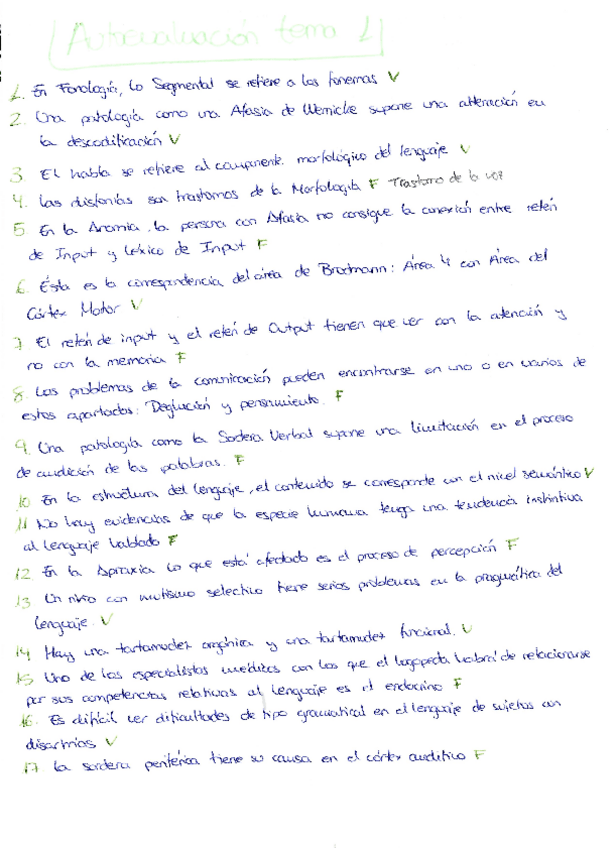 Autoevaluación tema 1
1. En Fonología, lo Segmental se refiere a los fonemas V
2. Una patología como una Afasia de Wernicke supone una alteración en
la descodificación V
3. El habla se refiere al componente morfológico del lenguaje V
4. Las disfonías son trastornos de la Morfología F Trastorno de la voz
5. En la Anomia, la persona con Afasia no consigue la conexión entre retén
de Input y léxico de Input F
6. Ésta es la correspondencia del área de Brodmann: Área 4 con Área del
Córtex Motor V
7. El retén de input y el retén de Output tienen que ver con la atención y
no con la memoria F
8. Los problemas de la comunicación pueden encontrarse en uno o en varios de
estos apartados: Deglución y pensamiento. F
9. Una patología como la Sordera Verbal supone una limitación en el proceso
de audición de las palabras. F
10. En la estructura del lenguaje, el contenido se corresponde con el nivel semántico V
11. No hay evidencias de que la especie humana tenga una tendencia instintiva
al lenguaje hablado F
12. En la Apraxia lo que está afectado es el proceso de percepción F
13. Un niño con mutismo selectivo tiene serios problemas en la pragmática del
lenguaje. V
14. Hay una tartamudez orgánica y una tartamudez funcional. V
15. Uno de los especialistas médicos con los que el logopeda habrá de relacionarse
por sus competencias relativas al lenguaje es el endocrino F
16. Es difícil ver dificultades de tipo gramatical en el lenguaje de sujetos con
disartrias V
17. La sordera periférica tiene su causa en el córtex auditivo F